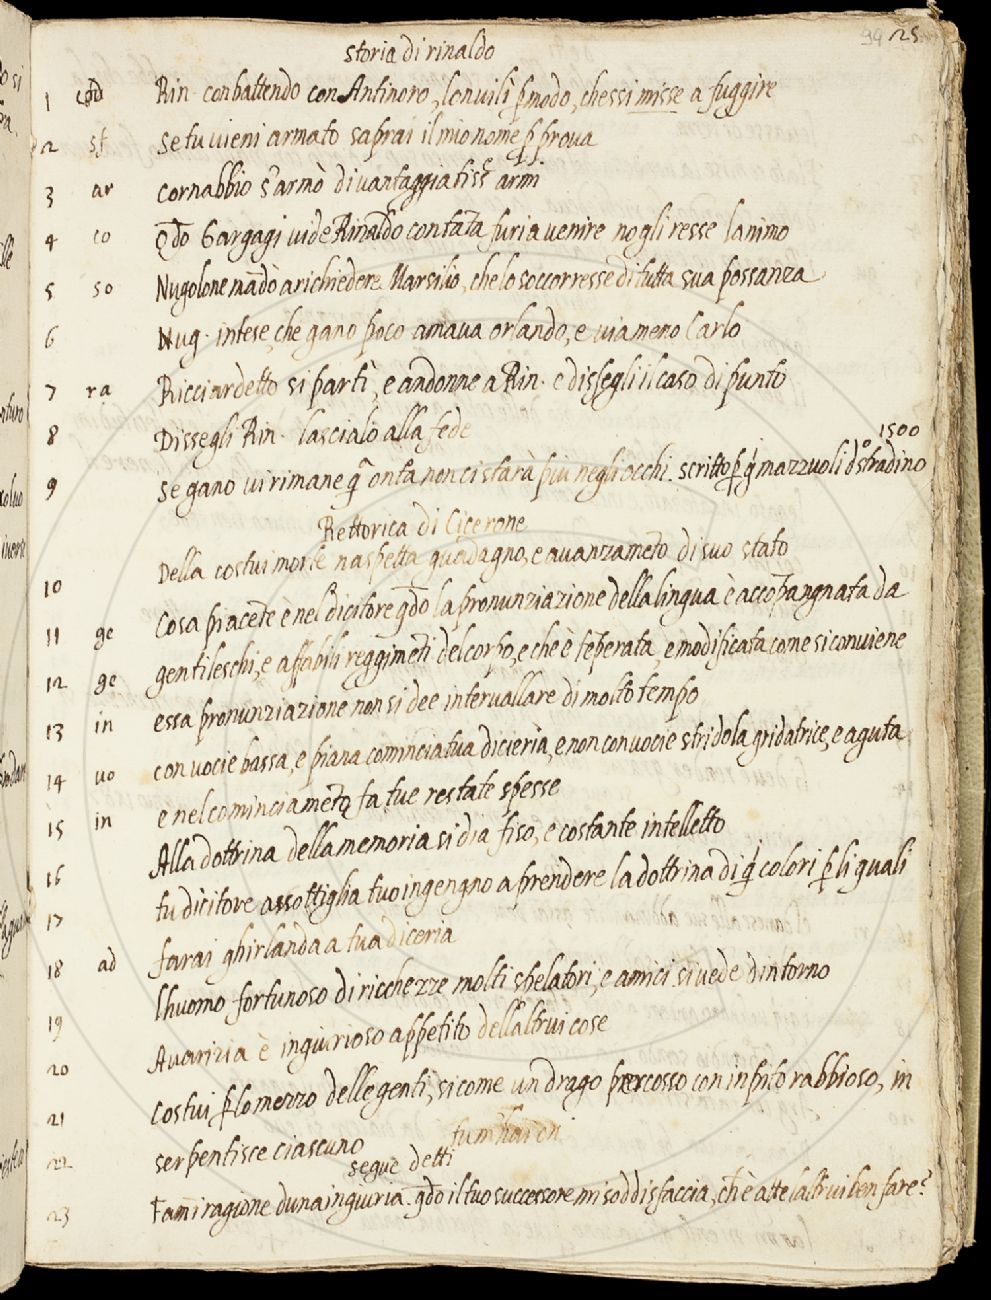 99 25
storia di rinaldo
1 Rin. conbattendo con Antinoro, lonvilì p̱ modo, chessi misse a fuggire
2 st se tu vieni armato saprai il mio nome p̱ prova
3 ar cornabbio s'armò di vantaggiatiss.e armi
4 co Q̄do Gargagi vide Rinaldo con tāta furia venire nogli resse lanimo
5 so Nugolone mādò a richiedere Marsilio, che lo soccorresse di tutta sua possanza
6 Nug. intese, che gano poco amava orlando, e via meno Carlo
7 ra Ricciardetto si partì, e andonne a Rin. e dissegli il caso di punto
8 Dissegli Rin. lascialo alla fede
1500
9 se gano vi rimane q̄ onta non ci starà più negli occhi. scritto p̱ q̇ mazzuoli dº stradino
Rettorica di Cicerone
Della costui morte n'aspetta guadagno, e avanzamēto di suo stato
10 Cosa piacēte è nel dicitore q̄do la pronunziazione della lingua è accōpangnata da
11 ge gentileschi, e affabili reggimēti del corpo, e che è tēperata, e modificata come si conviene
12 ge essa pronunziazione non si dee intervallare di molto tempo
13 in con vocie bassa, e piana comincia tua dicieria, e non con vocie stridola gridatrice, e aguta
14 vo e nel cominciamēto fa tue restate spesse
15 in Alla dottrina della memoria si dia fiso, e costante intelletto
16 tu dicitore assottiglia tuo ingengno a prendere la dottrina di q̇ colori p̱ li quali
17 farai ghirlanda a tua diceria
18 ad lhuomo fortunoso di ricchezze molti spelatori, e amici si vede dintorno
19 Avarizia è ingiurioso appetito dell'altrui cose
20 Costui p̱ lo mezzo delle genti, si come un drago percosso con inpito rabbioso, in
21 serpentisce ciascuno
22 segue detti
23 famī ragione duna ingiuria. q̄do il tuo successore mi soddisfaccia, ch'è atte laltrui ben fare?